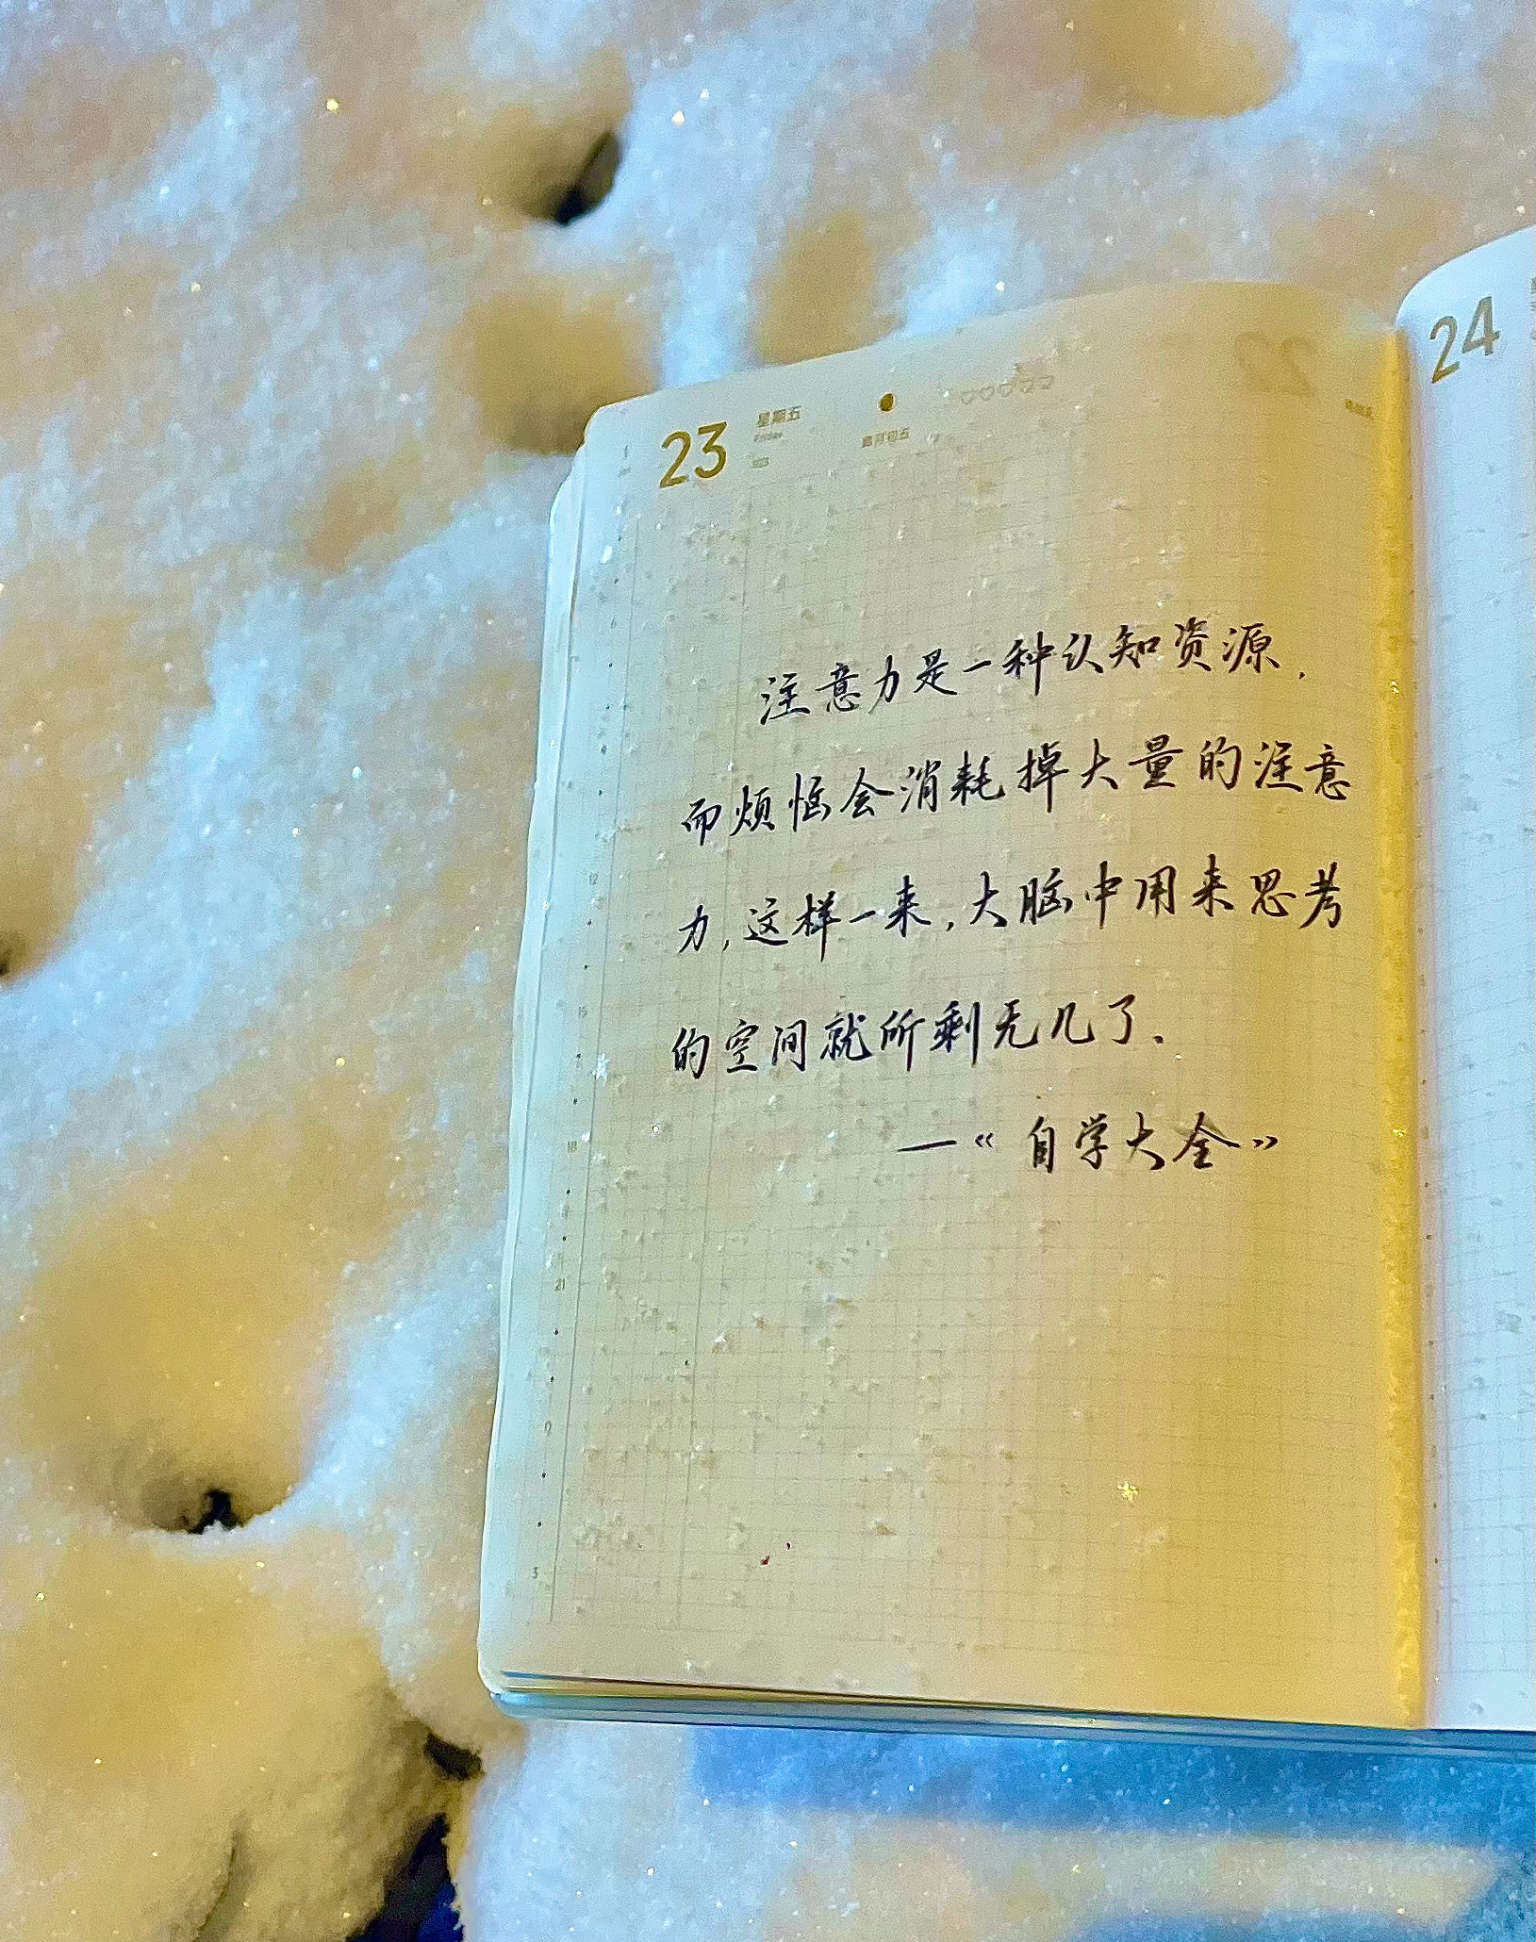 23
星期五
Friday
24
注意力是一种认知资源，
而烦恼会消耗掉大量的注意
力，这样一来，大脑中用来思考
的空间就所剩无几了。
—《自学大全》
12
15
18
21
0
3